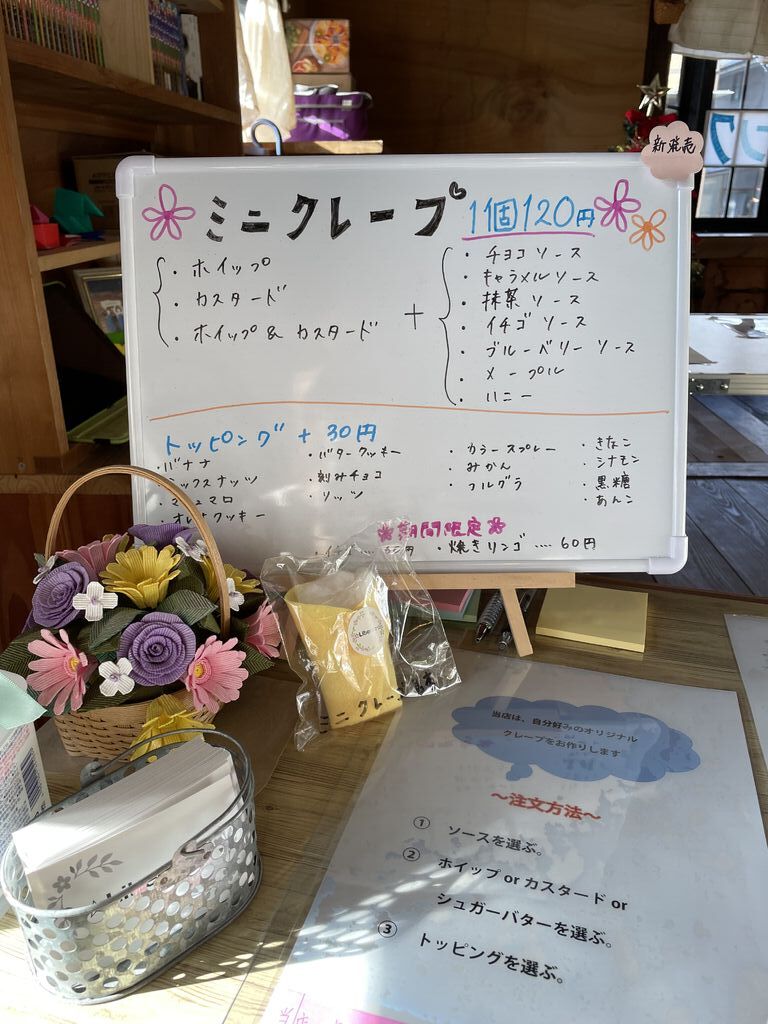 新発売
ミニクレープ 1個120円
・ホイップ
・カスタード
・ホイップ & カスタード
+
・チョコソース
・キャラメルソース
・抹茶ソース
・イチゴソース
・ブルーベリーソース
・メープル
・ハニー
トッピング + 30円
・バナナ
ミックスナッツ
・オレオクッキー
・バタークッキー
・刻みチョコ
・リッツ
・カラースプレー
・みかん
・フルグラ
・きなこ
・シナモン
・黒糖
・あんこ
期間限定
・焼きリンゴ .... 60円
ミニクレー
当店は、自分好みのオリジナル
クレープをお作りします
～注文方法～
① ソースを選ぶ。
② ホイップ or カスタード or
シュガーバターを選ぶ。
③ トッピングを選ぶ。